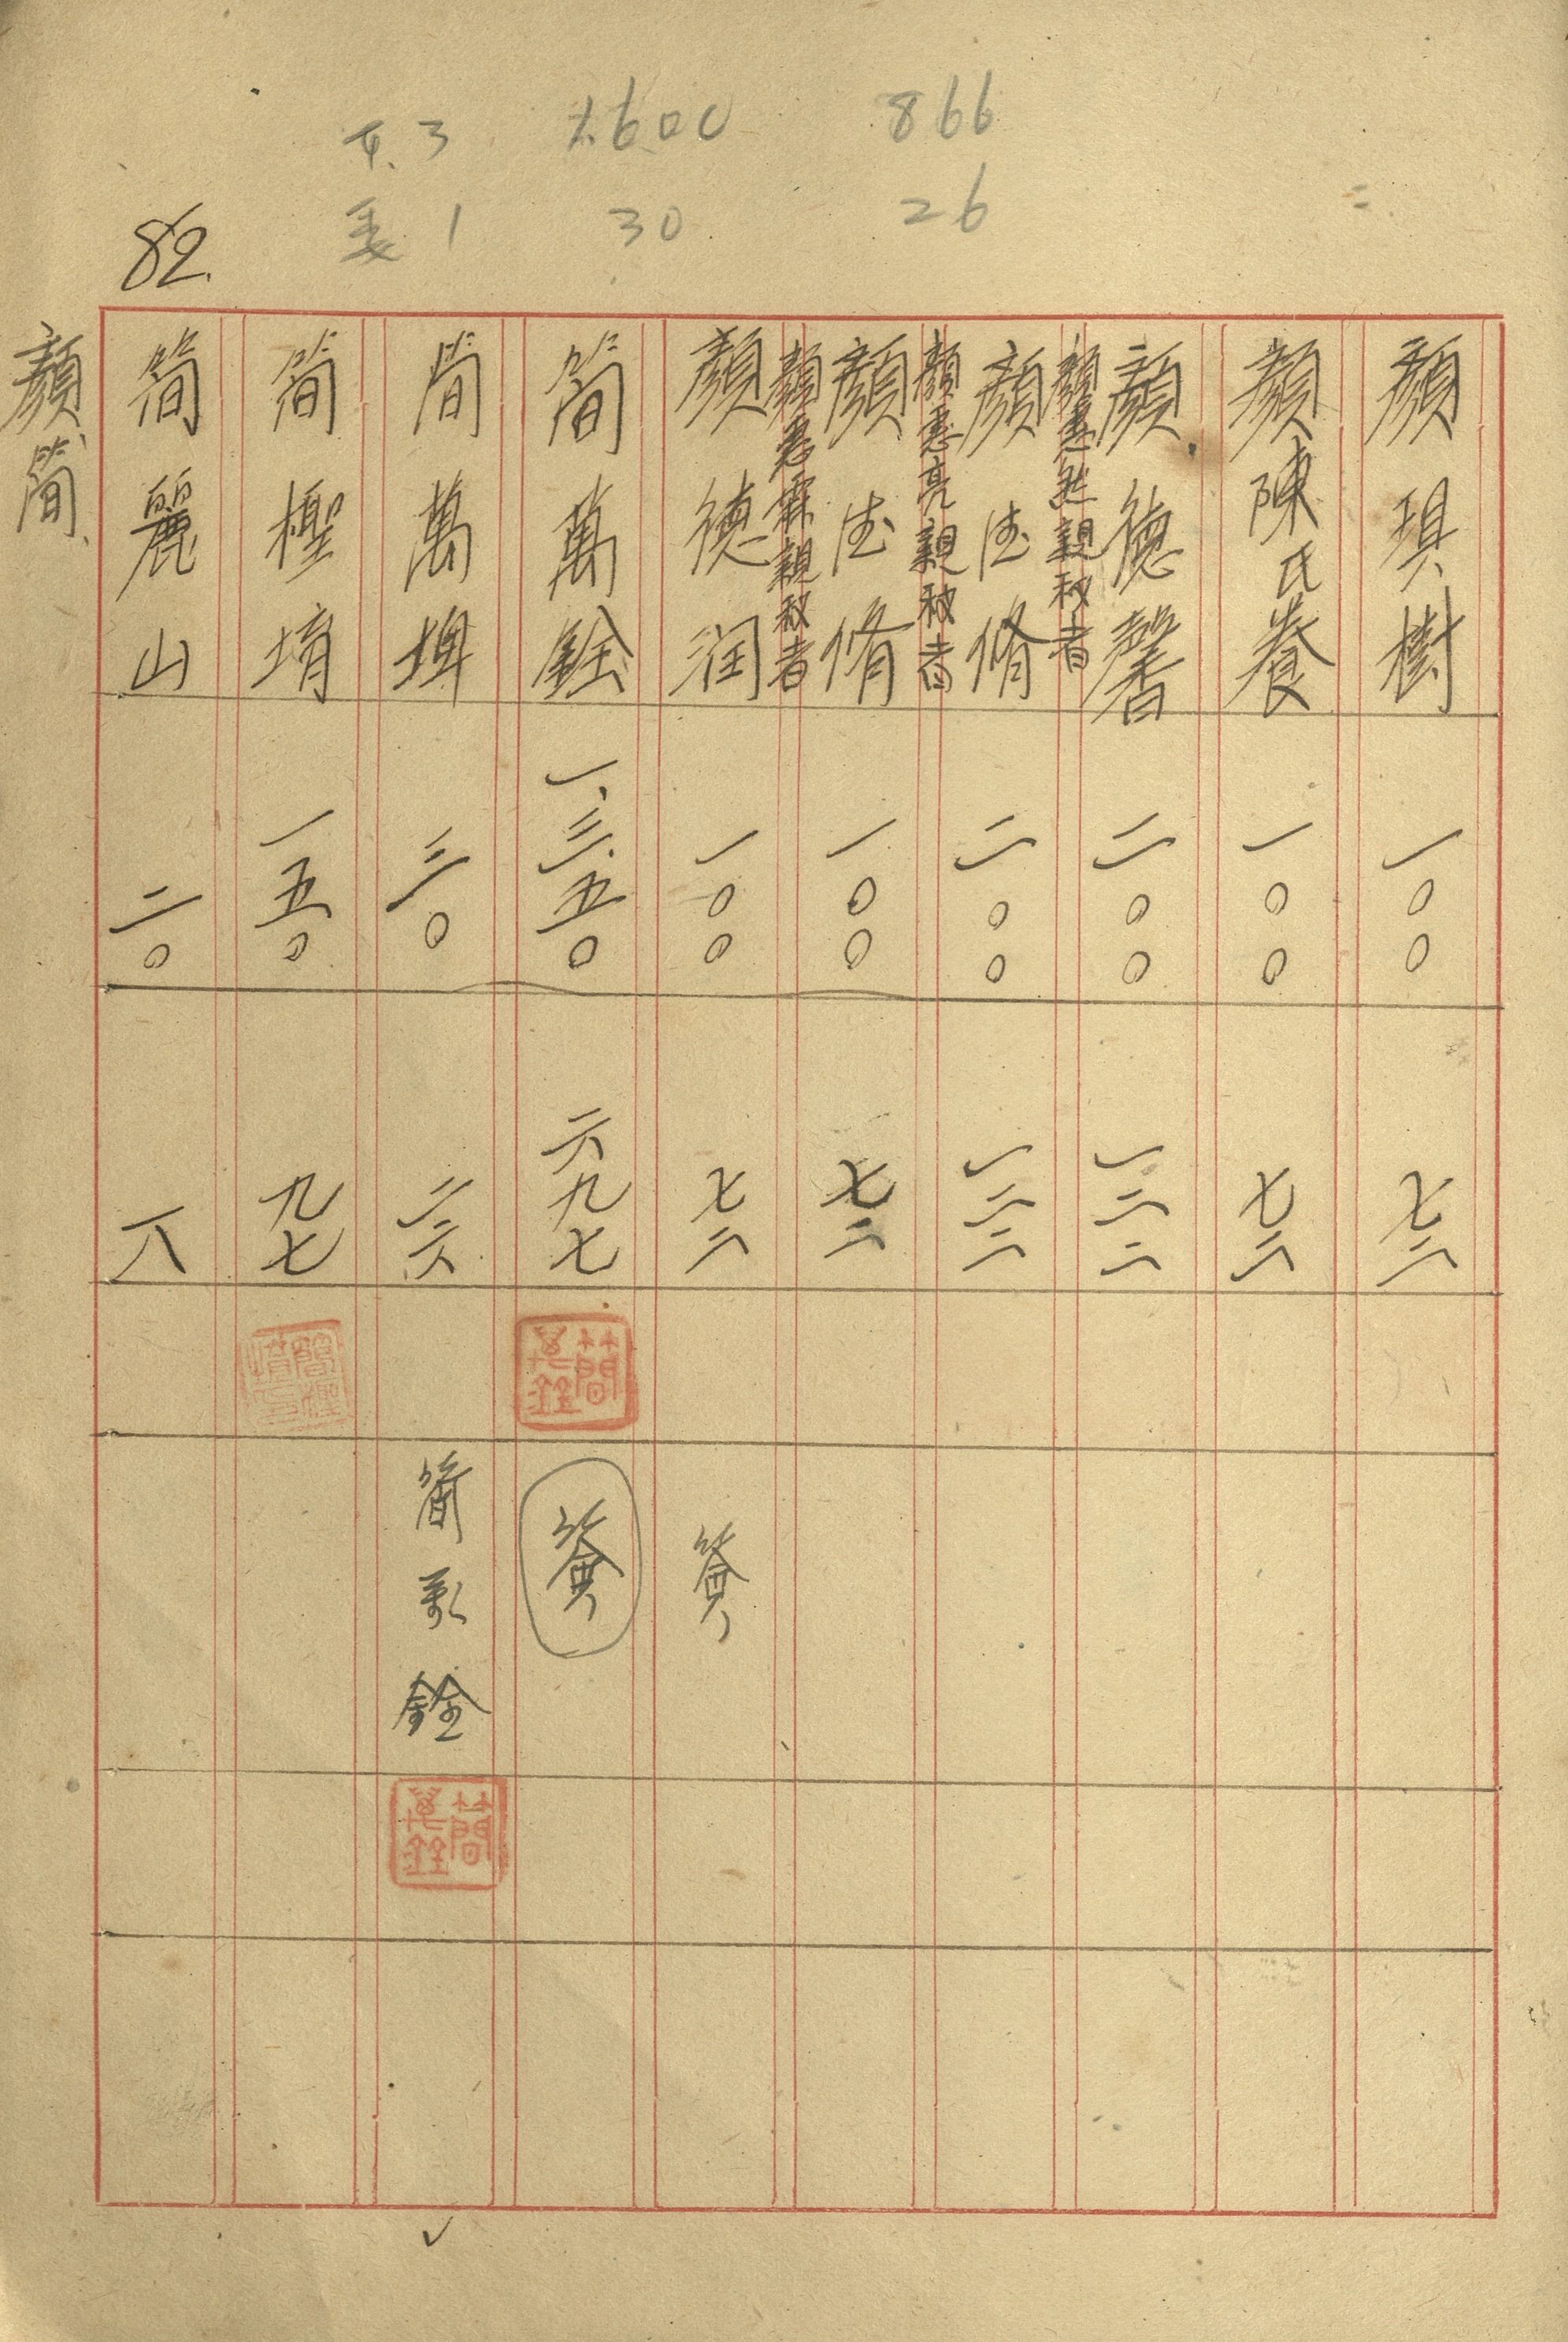 本.3 1.600 866
委1 30 26
82.
顏琪樹 一〇〇 七二
顏陳氏養 一〇〇 七二
顏德馨 二〇〇 一二二
顏惠然親權者
顏德脩 二〇〇 一三二
顏惠亮親權者
顏德脩 一〇〇 七二
顏惠霖親權者
顏德潤 一〇〇 七二 簽
簡萬銓 一、三五〇 六九七 簡萬銓 簽
簡萬埤 三〇 二六 簡萬銓 簡萬銓
簡檉堉 一五〇 九七 簡檉堉印
簡麗山 二〇 一八
顏、簡、